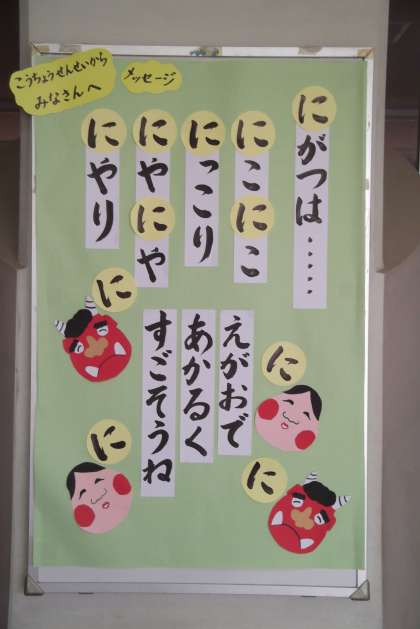 こうちょうせんせいから
みなさんへ
メッセージ
にがつは……
にこにこ
にっこり
にやにや
にやり
えがおで
あかるく
すごそうね
に
に
に
に